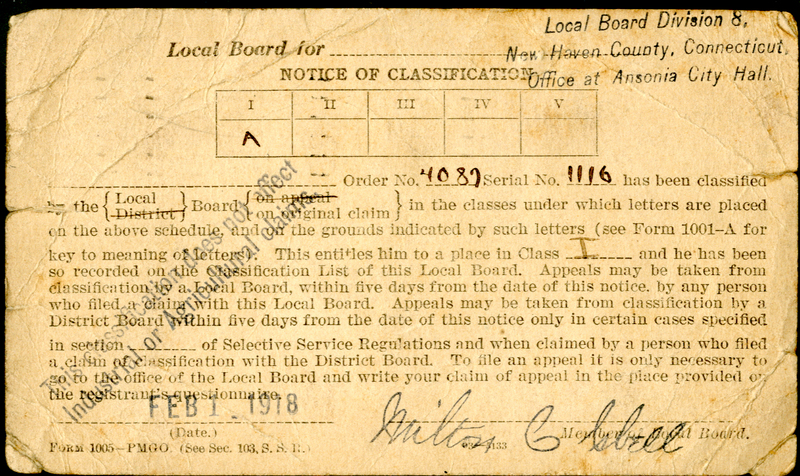 Local Board Division 8,
Local Board for New Haven County, Connecticut,
NOTICE OF CLASSIFICATION Office at Ansonia City Hall.
I II III IV V
A
Order No. 4087 Serial No. 1116 has been classified
by the { Local District } Board { on appeal on original claim } in the classes under which letters are placed
on the above schedule, and on the grounds indicated by such letters (see Form 1001–A for
key to meaning of letters). This entitles him to a place in Class I and he has been
so recorded on the Classification List of this Local Board. Appeals may be taken from
classification by a Local Board, within five days from the date of this notice, by any person
who filed a claim with this Local Board. Appeals may be taken from classification by a
District Board within five days from the date of this notice only in certain cases specified
in section of Selective Service Regulations and when claimed by a person who filed
a claim of classification with the District Board. To file an appeal it is only necessary to
go to the office of the Local Board and write your claim of appeal in the place provided on
the registrant's questionnaire.
This classification does not affect
Industrial or Agricultural claims.
FEB 1 1918 Milton C. Isbell
(Date.) Member of Local Board.
Form 1005—PMGO. (See Sec. 103, S. S. R.)